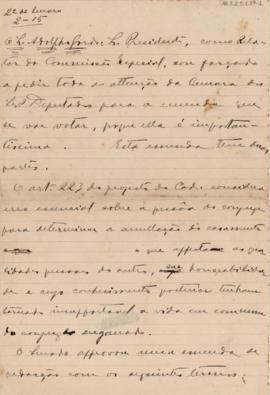 22 de Janeiro
2-15
O Sr. Adolpho Gordo: Sr. Presidente, como Rela-
tor da Commissão Especial, sou forçado
a pedir toda a attenção da Camara dos
Srs. Deputados para a emenda que
se vae votar, porque ella é importan-
tissima. Esta emenda tem duas
partes.
O art. 223 do projecto do Cod. considera
erro essencial sobre a pessoa do conjuge
para determinar a annullação do casamento
o que affecta as qua-
lidades pessoaes do outro, honorabilida-
de e cujo conhecimento posterior tenham
tornado insupportavel a vida em commum
do conjuge enganado.
O Senado approvou uma emenda de
redacção com os seguintes termos: